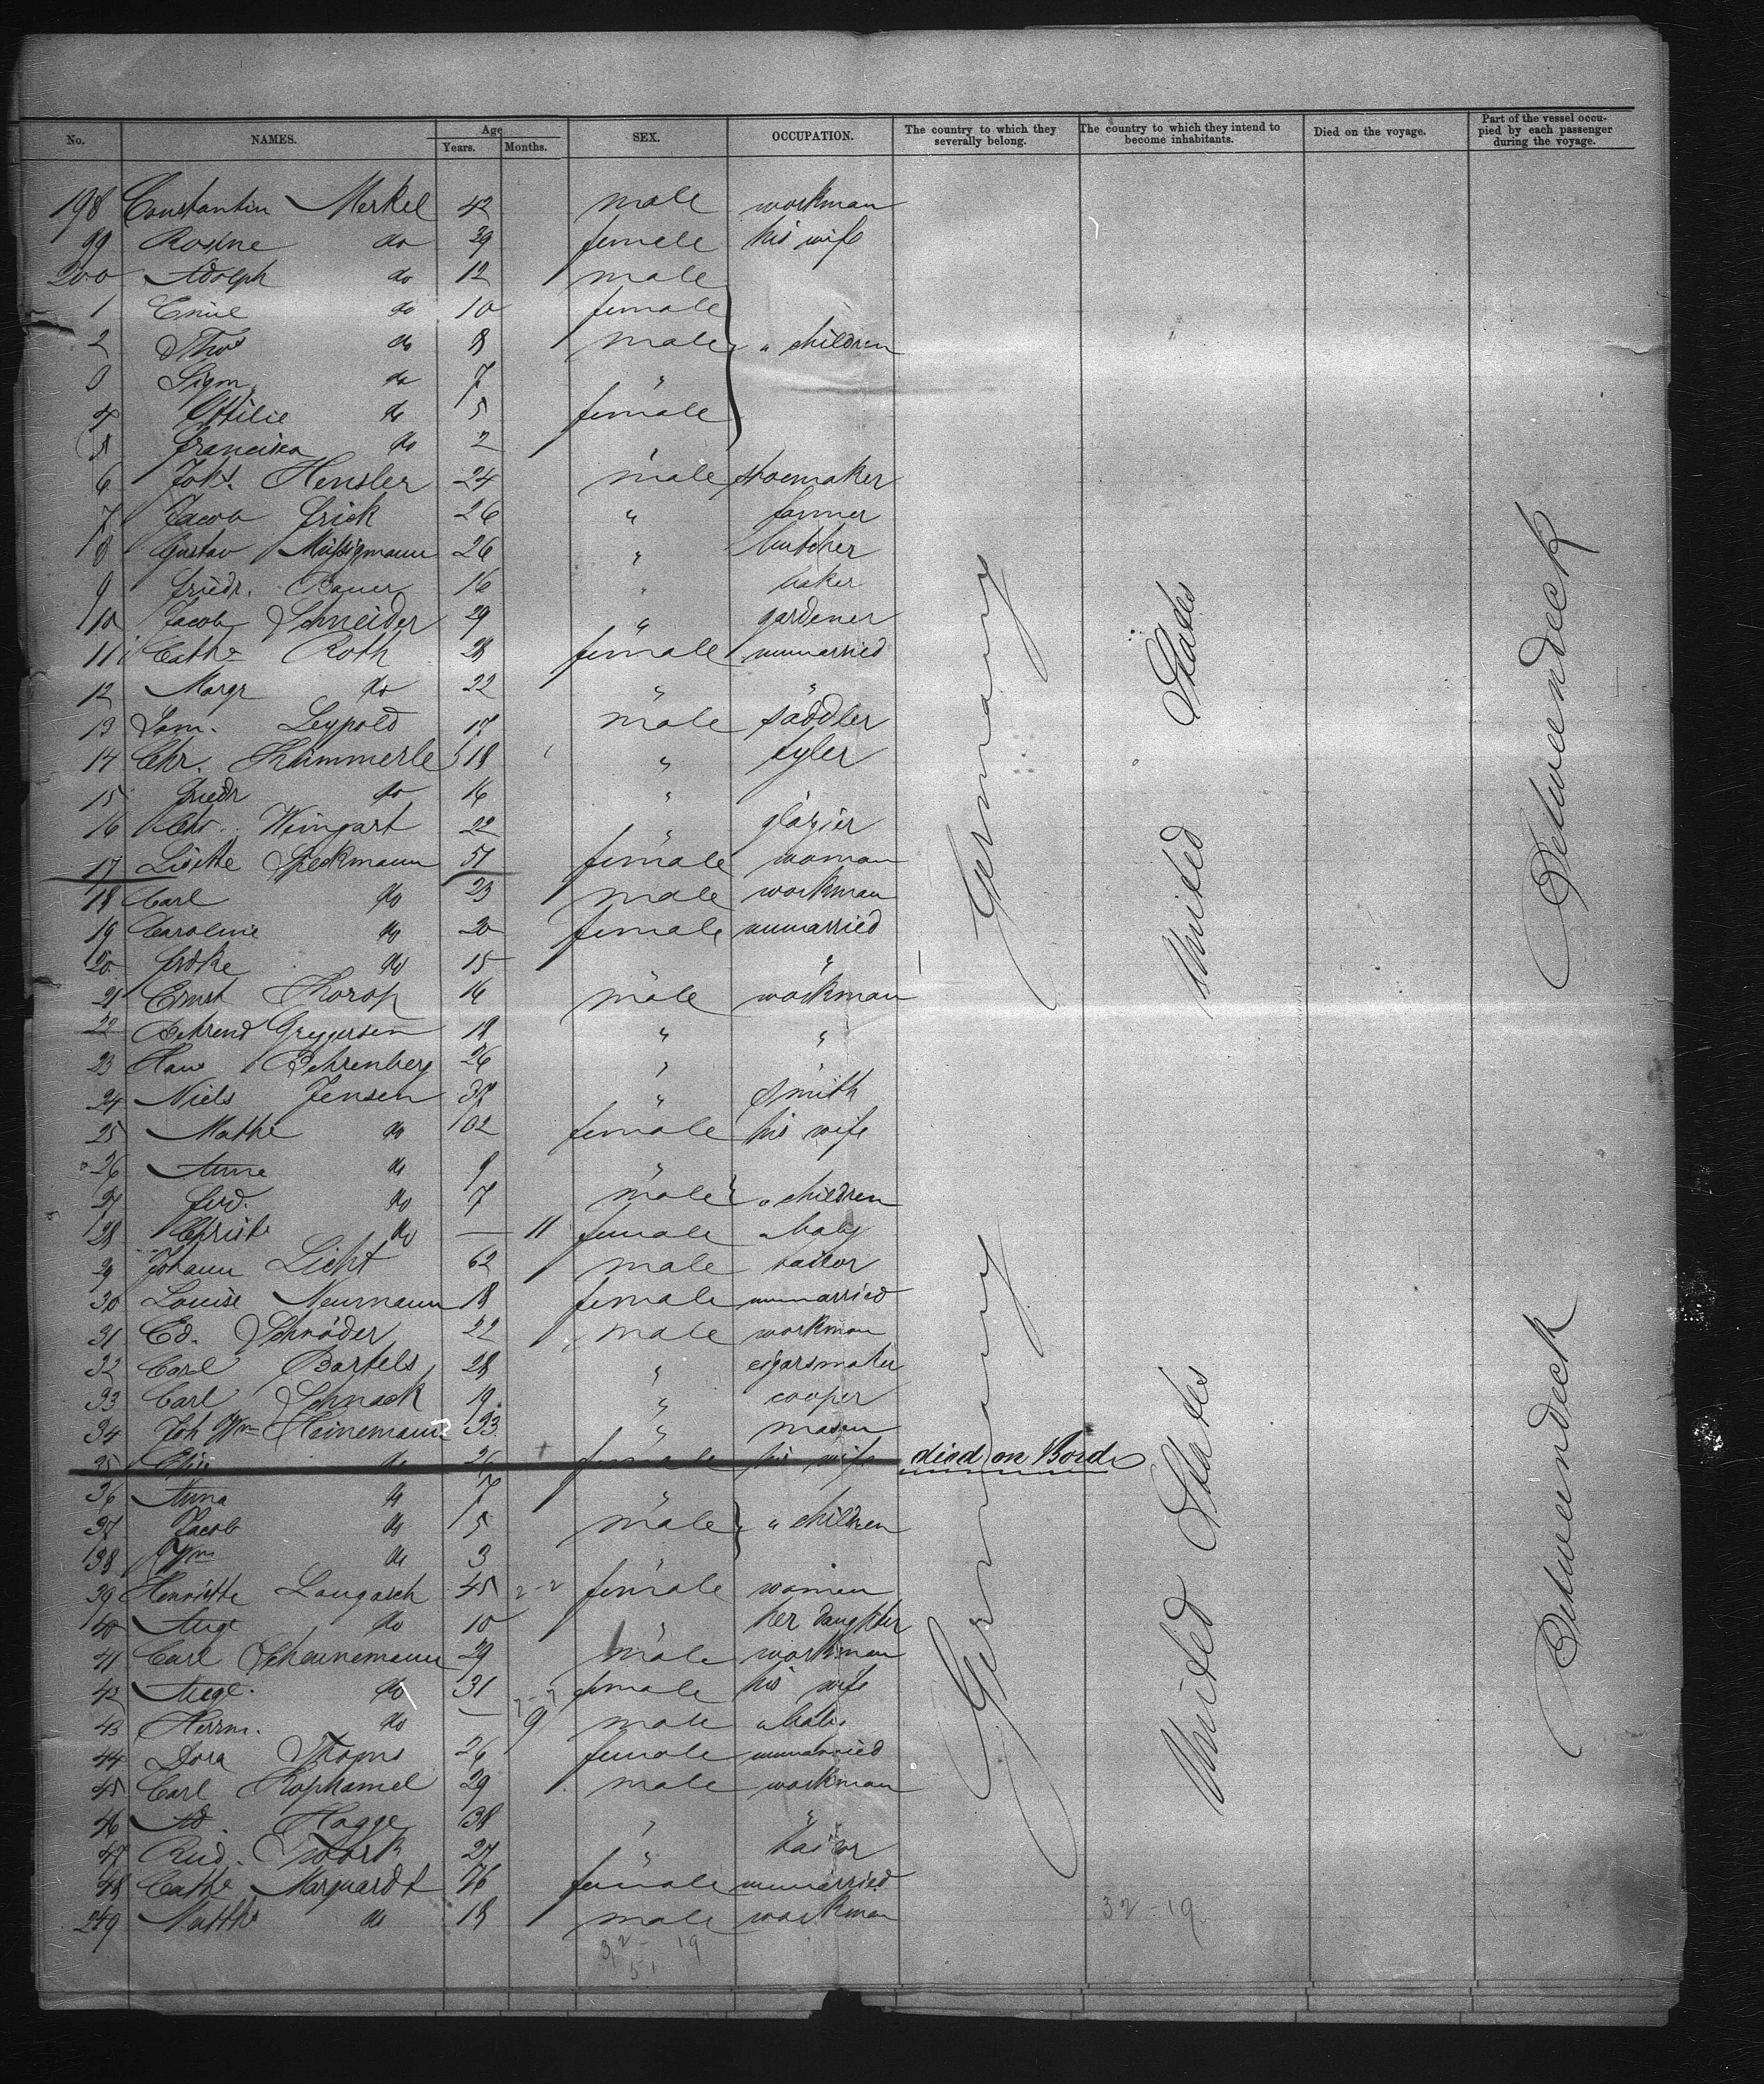 No. NAMES. Age Years. Months. SEX. OCCUPATION. The country to which they severally belong. The country to which they intend to become inhabitants. Died on the voyage. Part of the vessel occupied by each passenger during the voyage.
198 Constantin Merkel 42 male workman
99 Rosine do 39 female his wife
200 Adolph do 12 male
1 Emil do 10 female
2 do 8 male " children
Sigm. do 7 "
4 Ottilie do 5 female
5 Francisca do 2 "
6 Joh. Hensler 24 male shoemaker
7 Jacob Frick 26 " farmer
8 Gustav Müßigmann 26 " butcher
9 Friedr. Bauer 16 " baker
10 Jacob Schneider 29 " gardener
11 Cathe Roth 28 female unmarried
12 Margr do 22 " "
13 Leypold 17 male saddler
14 Chr. Kümmerle 18 " tyler
15 Friedr do 16 "
16 Chr. Weingart 22 " glazier
17 Lisette Speckmann 51 female woman
18 Carl do 23 male workman
19 Caroline do 20 female unmarried
20 do 15 " "
21 Ernst Korop 16 male workman
22 Behrend Greggersen 19 " "
23 Hans Behrenberg 26 "
24 Niels Jensen " smith
25 Mathe do female his wife
26 Anne do 9 "
27 Ferd. do 7 male " children
28 Christe do — 11 female " baby
29 Johann Licht 62 male tailor
30 Louise Neumann 18 female unmarried
31 Ed. Schröder 22 male workman
32 Carl Bartels 28 " cigarsmaker
33 Carl Schnack 19 " cooper
34 Joh Wm Heinemann 33 " mason
35 Elise do 26 female his wife died on Bord
36 Anna do 7 "
37 Jacob do 5 male " children
38 Wm do 3
39 Henriette Langasch 45 female women
40 Auge do 10 " her daughter
41 Carl Scheunemann 29 male workman
42 Auge. do 31 female his wife
43 Herrm. do — 9 male " baby
44 Dora Thoms 26 female unmarried
45 Carl Kophamel 29 male workman
46 Ad. Hagge 38 " "
47 Rud. Twork 27 " tailor
48 Cathe Marquardt 16 female unmarried
249 Matths do 18 male workman
32 - 19
51
32 - 19
Germany
United States
Betweendeck
Germany
United States
Betweendeck